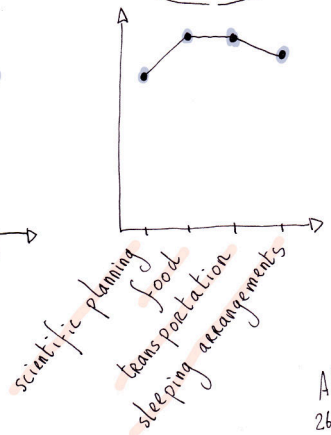 scientific planning
food
transportation
sleeping arrangements
A
26